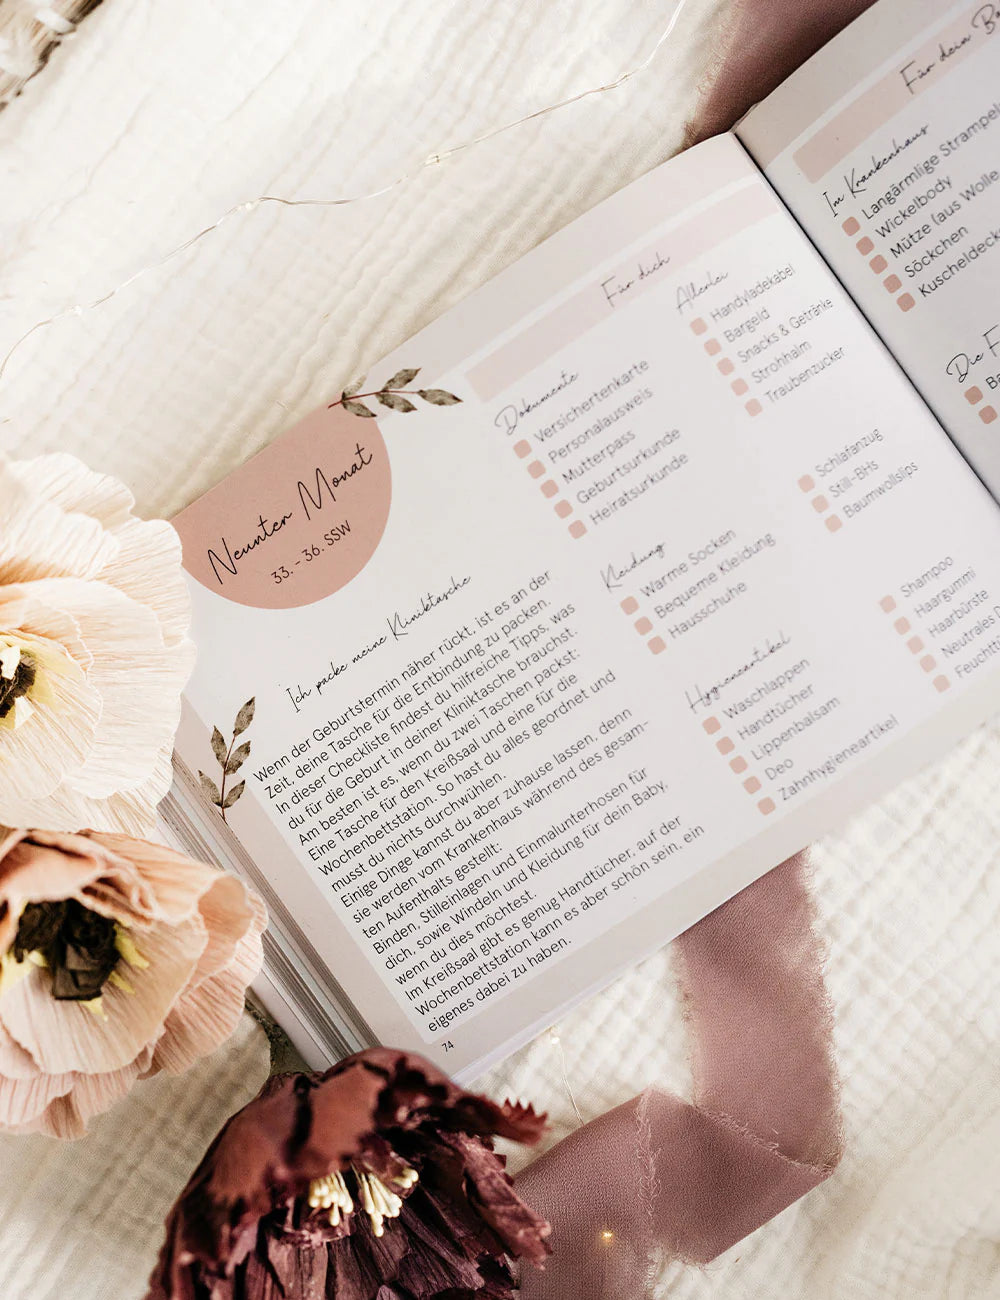 Neunter Monat
33. - 36. SSW
Ich packe meine Kliniktasche
Wenn der Geburtstermin näher rückt, ist es an der
Zeit, deine Tasche für die Entbindung zu packen.
In dieser Checkliste findest du hilfreiche Tipps, was
du für die Geburt in deiner Kliniktasche brauchst.
Am besten ist es, wenn du zwei Taschen packst:
Eine Tasche für den Kreißsaal und eine für die
Wochenbettstation. So hast du alles geordnet und
musst du nichts durchwühlen.
Einige Dinge kannst du aber zuhause lassen, denn
sie werden vom Krankenhaus während des gesam-
ten Aufenthalts gestellt:
Binden, Stilleinlagen und Einmalunterhosen für
dich, sowie Windeln und Kleidung für dein Baby,
wenn du dies möchtest.
Im Kreißsaal gibt es genug Handtücher, auf der
Wochenbettstation kann es aber schön sein, ein
eigenes dabei zu haben.
74
Für dich
Dokumente
Versichertenkarte
Personalausweis
Mutterpass
Geburtsurkunde
Heiratsurkunde
Allerlei
Handyladekabel
Bargeld
Snacks & Getränke
Strohhalm
Traubenzucker
Kleidung
Warme Socken
Bequeme Kleidung
Hausschuhe
Schlafanzug
Still-BHs
Baumwollslips
Hygieneartikel
Waschlappen
Handtücher
Lippenbalsam
Deo
Zahnhygieneartikel
Shampoo
Haargummi
Haarbürste
Neutrales
Feuchtt
Für dein Ba
Im Krankenhaus
Langärmlige Strampel
Wickelbody
Mütze (aus Wolle
Söckchen
Kuscheldeck
Die F
Ba